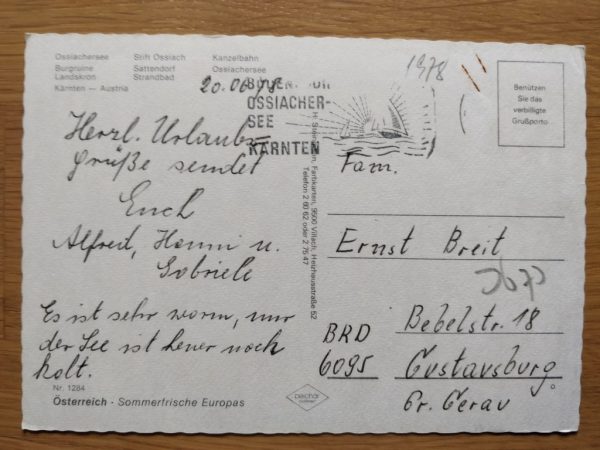 Ossiachersee Stift Ossiach Kanzelbahn
Burgruine Sattendorf Ossiachersee
Landskron Strandbad
Kärnten — Austria
20.06.78
Herzl. Urlaubs=
grüße sendet
Euch
Alfred, Hanni u.
Gabriele
Es ist sehr warm, nur
der See ist heuer noch
kalt.
Nr. 1284
Österreich · Sommerfrische Europas
OSSIACHER-
SEE
KÄRNTEN
Farbkarten, 9500 Villach, Heizhausstraße 52
Telefon 2 60 62 oder 2 75 47
1978
Benützen
Sie das
verbilligte
Grußporto
Fam.
Ernst Breit
Bebelstr. 18
BRD
6095 Gustavsburg
Gr. Gerau